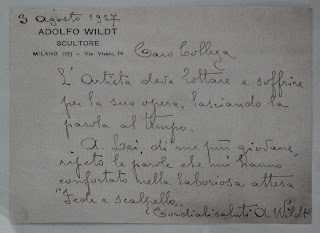 3 agosto 1927
ADOLFO WILDT
SCULTORE
MILANO (13) - Via Vivaio, 14
Caro Collega,
L'Artista deve lottare e soffrire
per la sua opera, lasciando la
parola al tempo.
A Lei, di me più giovane,
ripeto le parole che mi hanno
confortato nella laboriosa attesa
"Fede e scalpello.
Cordiali saluti A. Wildt